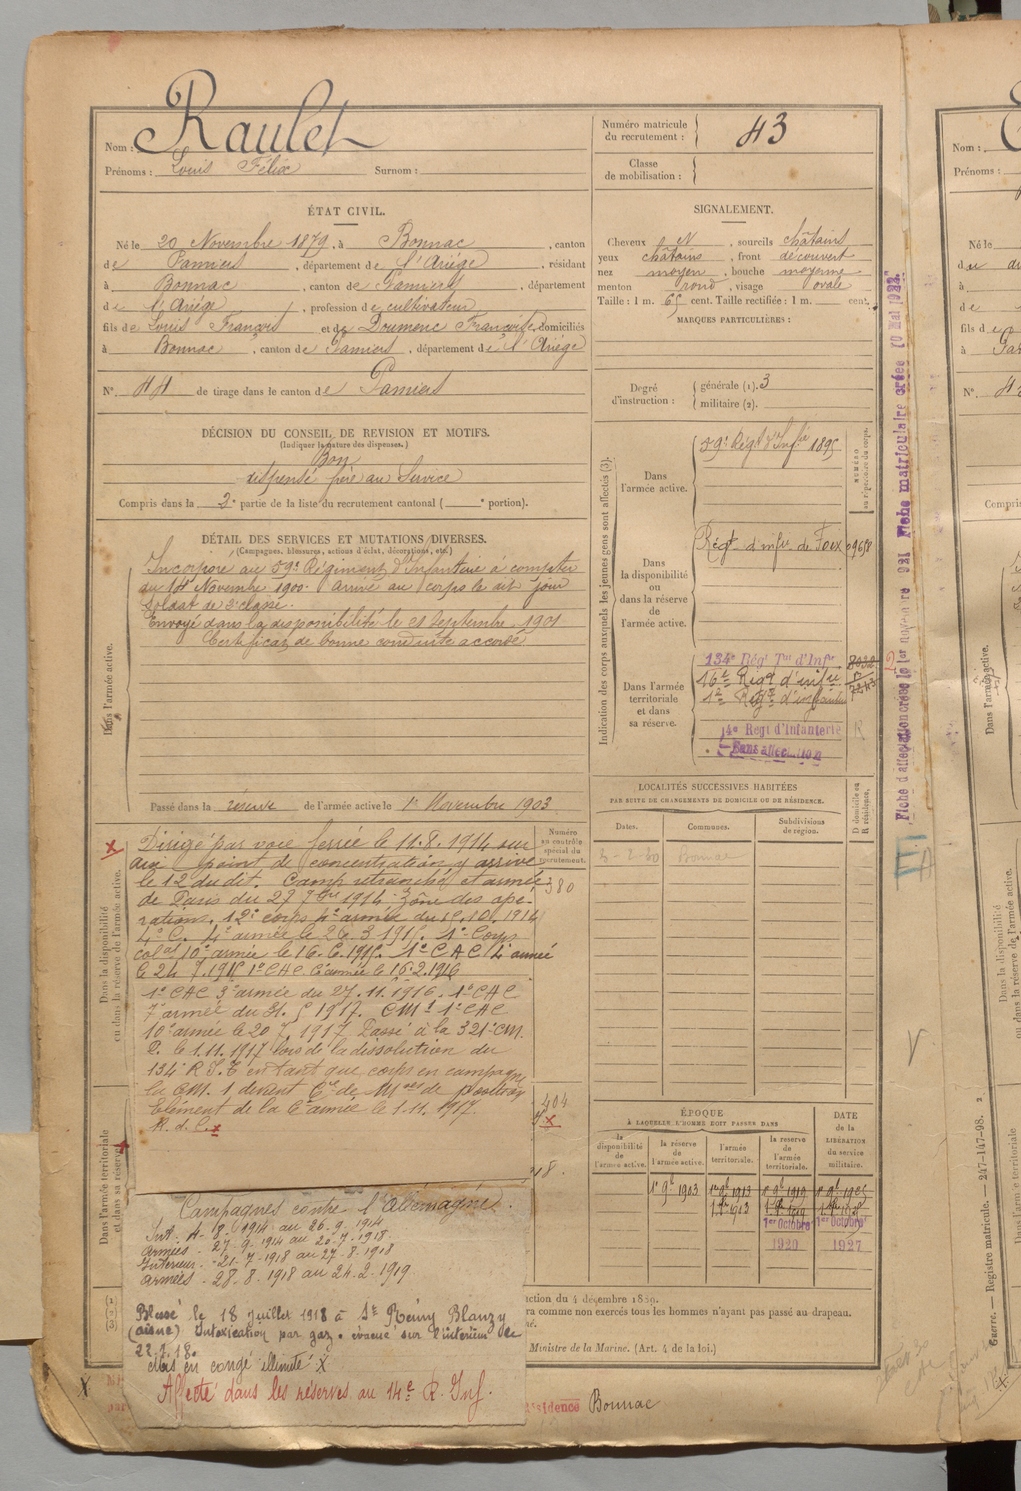 Nom : Raulet
Prénoms : Louis Félix Surnom :
Numéro matricule du recrutement : 43
Classe de mobilisation :
ÉTAT CIVIL.
Né le 20 Novembre 1879, à Bonnac, canton
de Pamiers, département de l'Ariége, résidant
à Bonnac, canton de Pamiers, département
de l'Ariége, profession de cultivateur
fils de Louis François et de Doumenc Françoise, domiciliés
à Bonnac, canton de Pamiers, département de l'Ariége
N° 44 de tirage dans le canton de Pamiers
SIGNALEMENT.
Cheveux N, sourcils châtains
yeux châtains, front découvert
nez moyen, bouche moyenne
menton rond, visage ovale
Taille : 1 m. 65 cent. Taille rectifiée : 1 m. cent.
MARQUES PARTICULIÈRES :
Degré d'instruction : générale (1). 3
militaire (2).
DÉCISION DU CONSEIL DE REVISION ET MOTIFS.
(Indiquer la nature des dispenses.)
Bon
dispensé frère au Service
Compris dans la 3e partie de la liste du recrutement cantonal ( e portion).
DÉTAIL DES SERVICES ET MUTATIONS DIVERSES.
(Campagnes, blessures, actions d'éclat, décorations, etc.)
Dans l'armée active.
Incorporé au 59e Régiment d'Infanterie à compter
du 14 Novembre 1900. Arrivé au corps le dit jour
Soldat de 2e classe.
Envoyé dans la disponibilité le 21 Septembre 1901
Certificat de bonne conduite accordé
Passé dans la réserve de l'armée active le 1er Novembre 1903
Indication des corps auxquels les jeunes gens sont affectés (3).
NUMÉRO au répertoire du corps.
Dans l'armée active.
59e Régt d'Infie 1895
Dans la disponibilité ou dans la réserve de l'armée active.
Régt d'infie de Foix
Dans l'armée territoriale et dans sa réserve.
134e Régt Tal d'Infie
14e Régt d'Infanterie
Fiche d'affectation créée le 1er novembre 921 Fiche matriculaire créée 10 Mai 1922.
LOCALITÉS SUCCESSIVES HABITÉES
PAR SUITE DE CHANGEMENTS DE DOMICILE OU DE RÉSIDENCE.
Dates. Communes. Subdivisions de région. D domicile ou R résidence.
Bonnac
Dans la disponibilité ou dans la réserve de l'armée active.
Numéro au contrôle spécial du recrutement.
380
Dirigé par voie ferrée le 11.8.1914 sur
point de concentration y arrivé
le 12 du dit. Camp retranché et armée
de Paris du 27 7bre 1914. Zône des opé-
rations. 12e corps 4e armée du 15.10.1914
4e C. 4e armée le 26.3.1915. 1e Corps
colal 10e armée le 16.6.1915. 1e CAC 4e armée
le 24 7.1915 1e CAC 6e armée le 16.2.1916
1e CAC 3e armée du 27.11.1916. 1e CAC
7e armée du 31. 5 1917. CM 1 1e CAC
10e armée le 20 7. 1917 Passé à la 321e CM.
P. le 1.11.1917 lors de la dissolution du
134e R I T en tant que corps en campagne
la CM. 1 devant Cie de Mses de position
Elément de la 6e armée le 1.11.1917.
404
ÉPOQUE
À LAQUELLE L'HOMME DOIT PASSER DANS
la disponibilité de l'armée active. la réserve de l'armée active. l'armée territoriale. la réserve de l'armée territoriale.
DATE de la LIBÉRATION du service militaire.
1er 9bre 1903 1er 9bre 1913 1er 9bre 1919 1er 9bre 1925
1er Octobre 1920 1er Octobre 1927
Dans l'armée territoriale et dans sa réserve.
Campagnes contre l'Allemagne.
Int. 4-8-1914 au 26-9-1914
Armées - 27-9-1914 au 20-7-1918.
Intérieur - 21-7-1918 au 27-8-1918
armées - 28-8-1918 au 24-2-1919
Blessé le 18 Juillet 1918 à St Rémy Blanzy
(Aisne) Intoxication par gaz. évacué sur l'intérieur le
22.7.18.
mis en congé illimité X
Affecté dans les réserves au 14e R. Inf.
ction du 4 décembre 1889.
ra comme non exercés tous les hommes n'ayant pas passé au drapeau.
Ministre de la Marine. (Art. 4 de la loi.)
résidence Bonnac
Guerre. — Registre matricule. — 247-147-98. 2